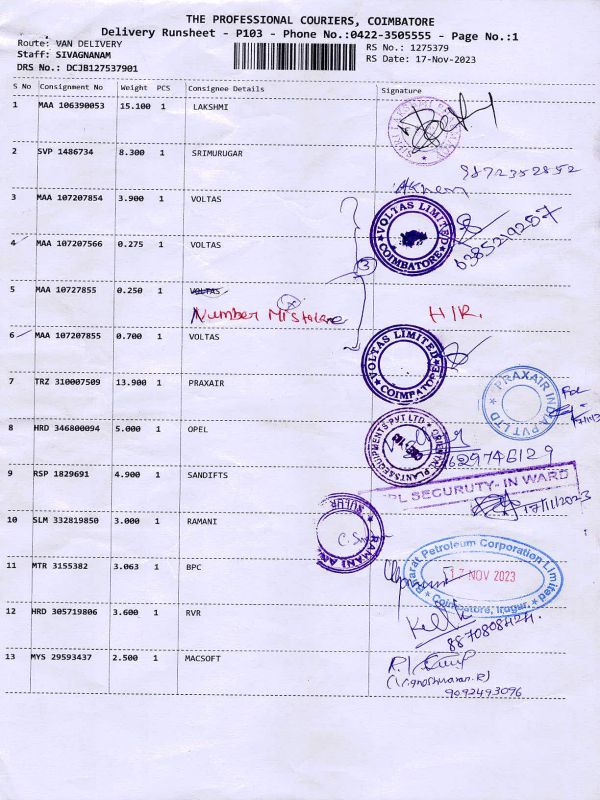 THE PROFESSIONAL COURIERS, COIMBATORE
Delivery Runsheet - P103 - Phone No.:0422-3505555 - Page No.:1
Route: VAN DELIVERY
RS No.: 1275379
Staff: SIVAGNANAM
RS Date: 17-Nov-2023
DRS No.: DCJB127537901
S No Consignment No Weight PCS Consignee Details Signature
1 MAA 106390053 15.100 1 LAKSHMI
2 SVP 1486734 8.300 1 SRIMURUGAR
9872352852
3 MAA 107207854 3.900 1 VOLTAS
VOLTAS LIMITED
COIMBATORE
4 MAA 107207566 0.275 1 VOLTAS
3
5 MAA 10727855 0.250 1 VOLTAS
Number Mistake
H/R.
6 MAA 107207855 0.700 1 VOLTAS
VOLTAS LIMITED
COIMPATORE
7 TRZ 310007509 13.900 1 PRAXAIR
PRAXAIR INDIA PVT LTD
8 HRD 346800094 5.000 1 OPEL
9629746129
9 RSP 1829691 4.900 1 SANDIFTS
PL SECURUTY- IN WARD
17/11/2023
10 SLM 332819850 3.000 1 RAMANI
SULUR
11 MTR 3155382 3.063 1 BPC
Bharat Petroleum Corporation Limited
17 NOV 2023
Coimbatore, Irugur.
12 HRD 305719806 3.600 1 RVR
13 MYS 29593437 2.500 1 MACSOFT
9092493096